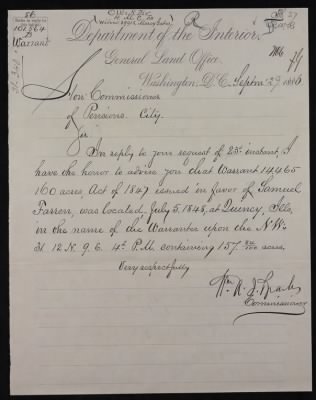 86
101,864
B
Warrant
Department of the Interior,
General Land Office,
Washington, D.C., Septem 29, 1886
Hon Commissioner
of Pensions. City.
Sir:
In reply to your request of 23d instant, I
have the honor to advise you that Warrant 14,465
160 acres, Act of 1847 issued in favor of Samuel
Farren, was located, July 5, 1848, at Quincy, Ills,
in the name of the Warrantee upon the N.W.
31. 12 N. 9 E. 4th P.M. containing 157 acres.
Very respectfully
Wm A. J. Sparks
Commissioner